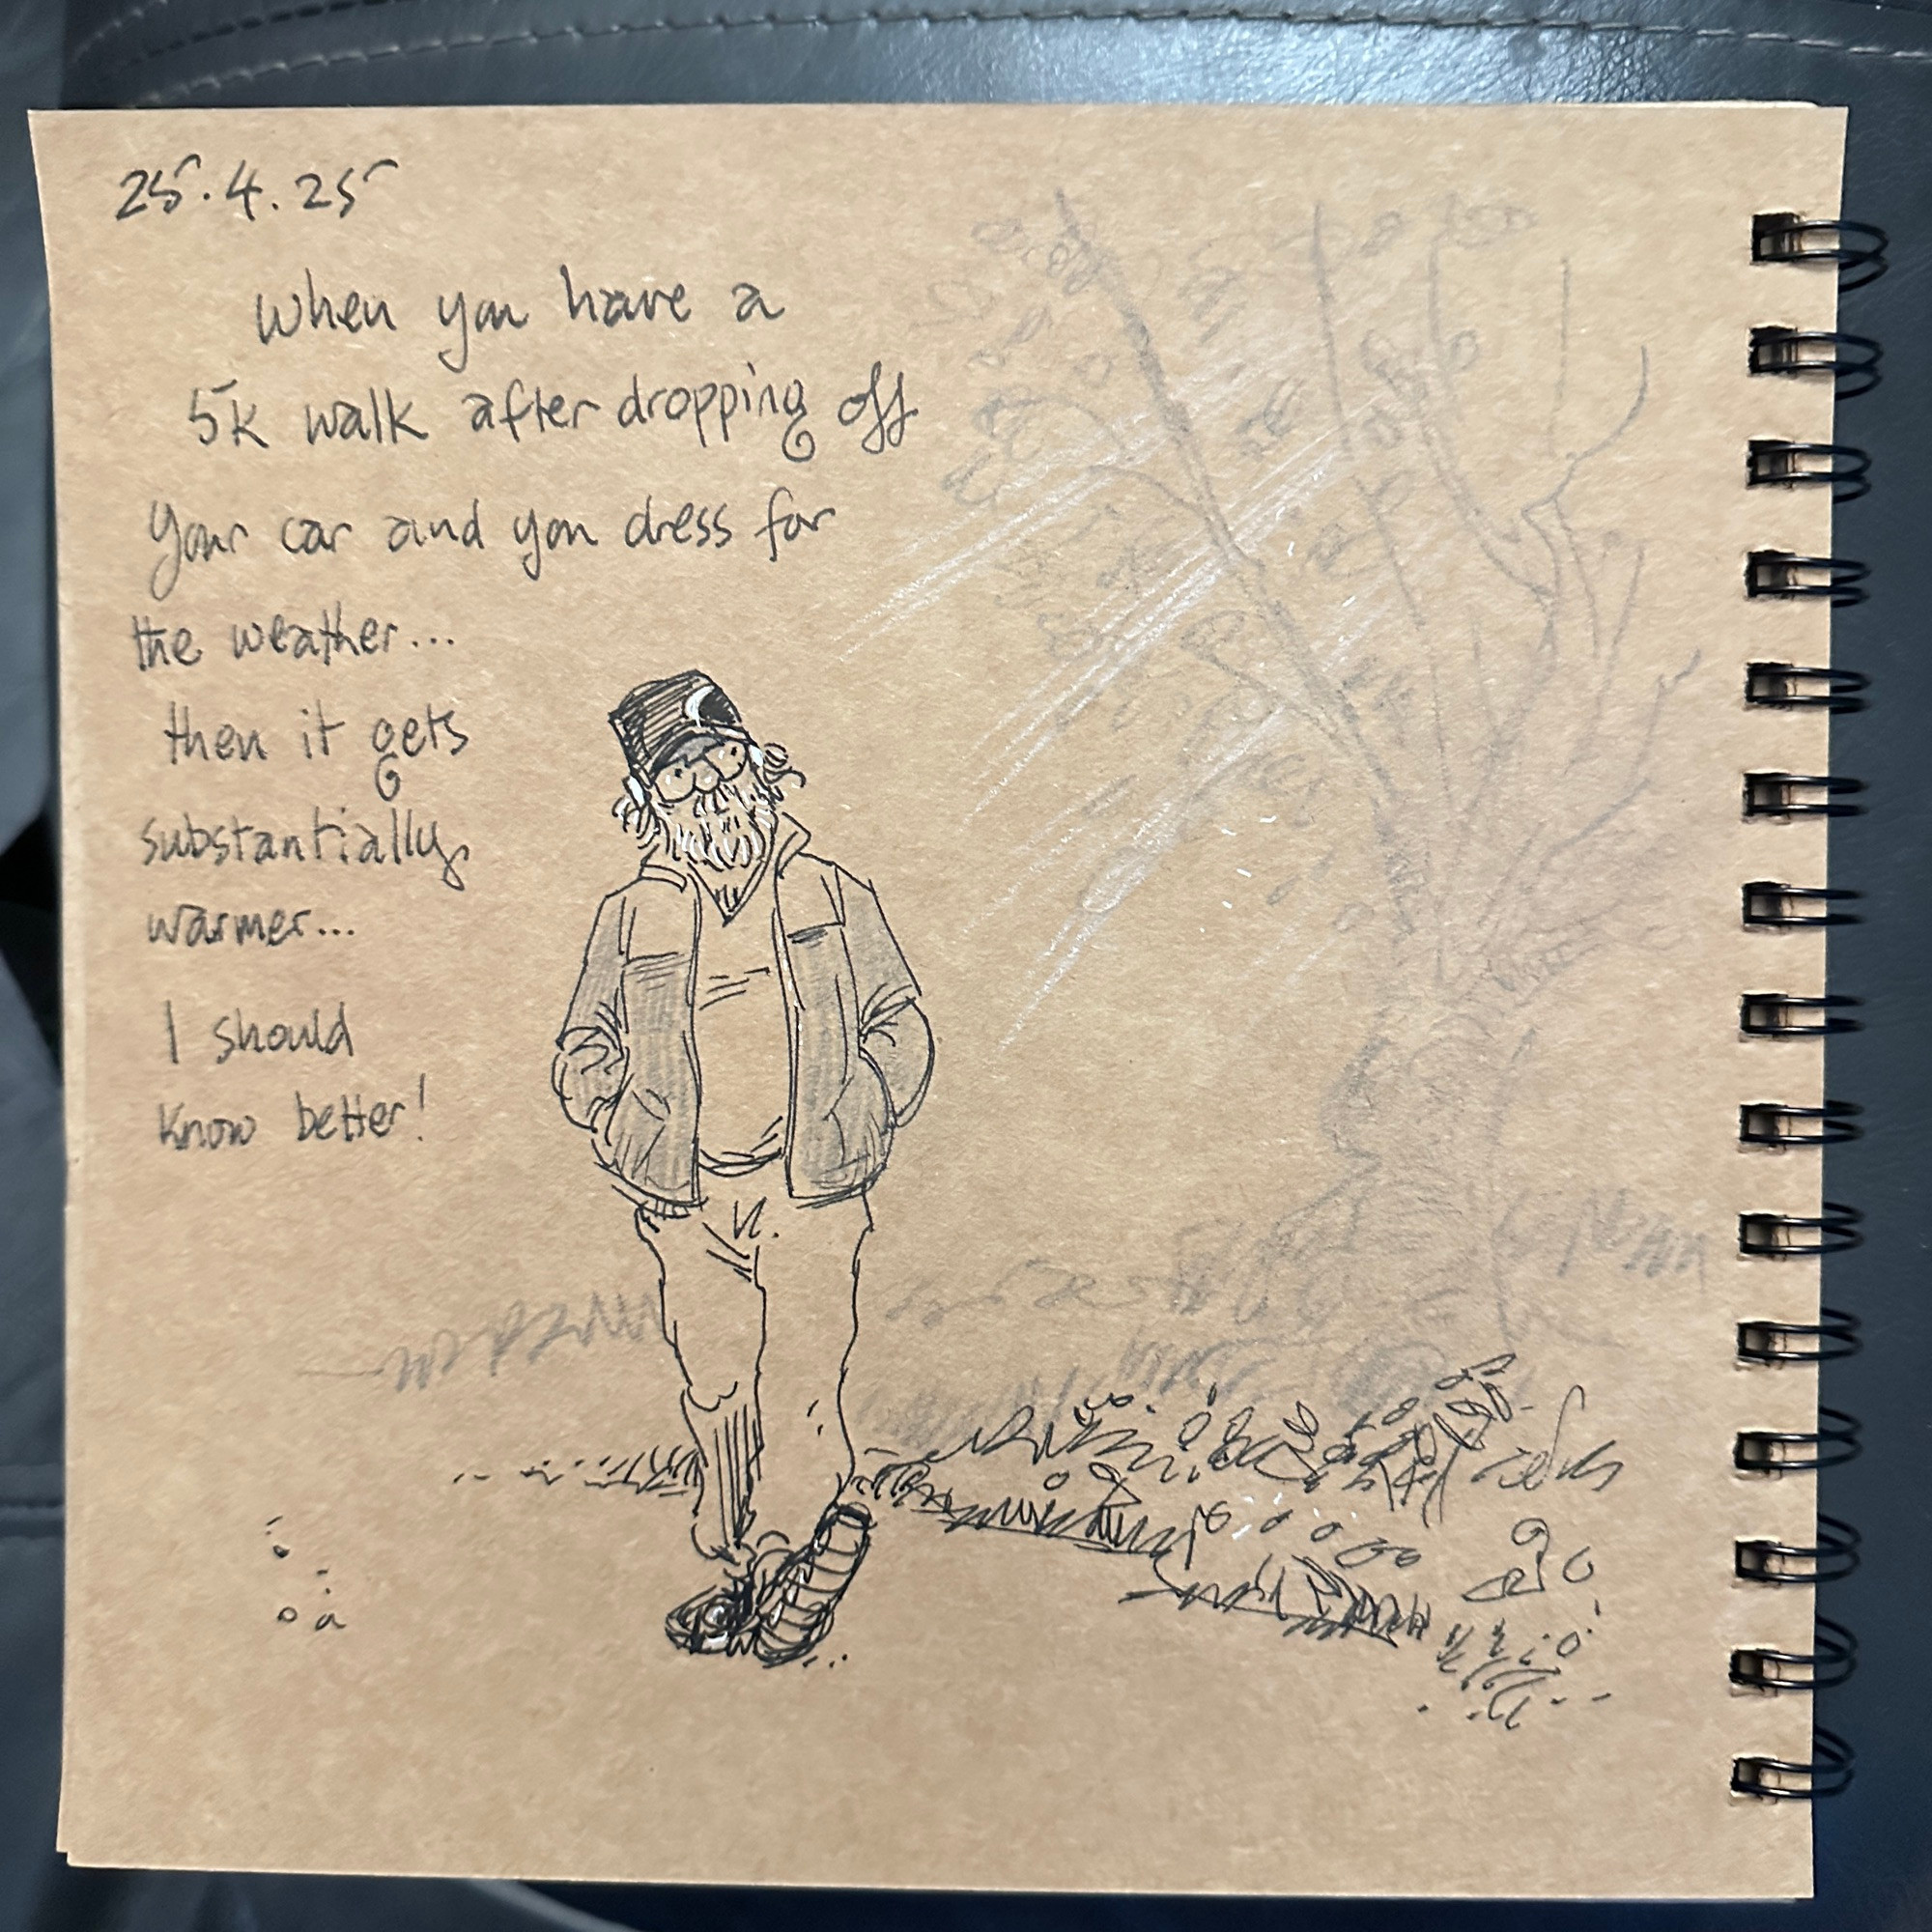 25.4.25
When you have a
5k walk after dropping off
your car and you dress for
the weather...
then it gets
substantially
warmer...
I should
know better!